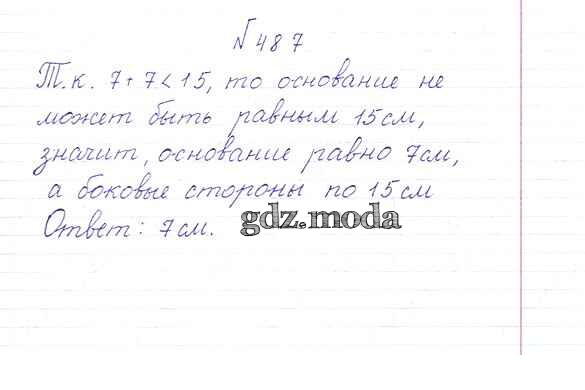 №487
Т.к. 7+7<15, то основание не
может быть равным 15см,
значит, основание равно 7см,
а боковые стороны по 15см
Ответ: 7см.
gdz.moda